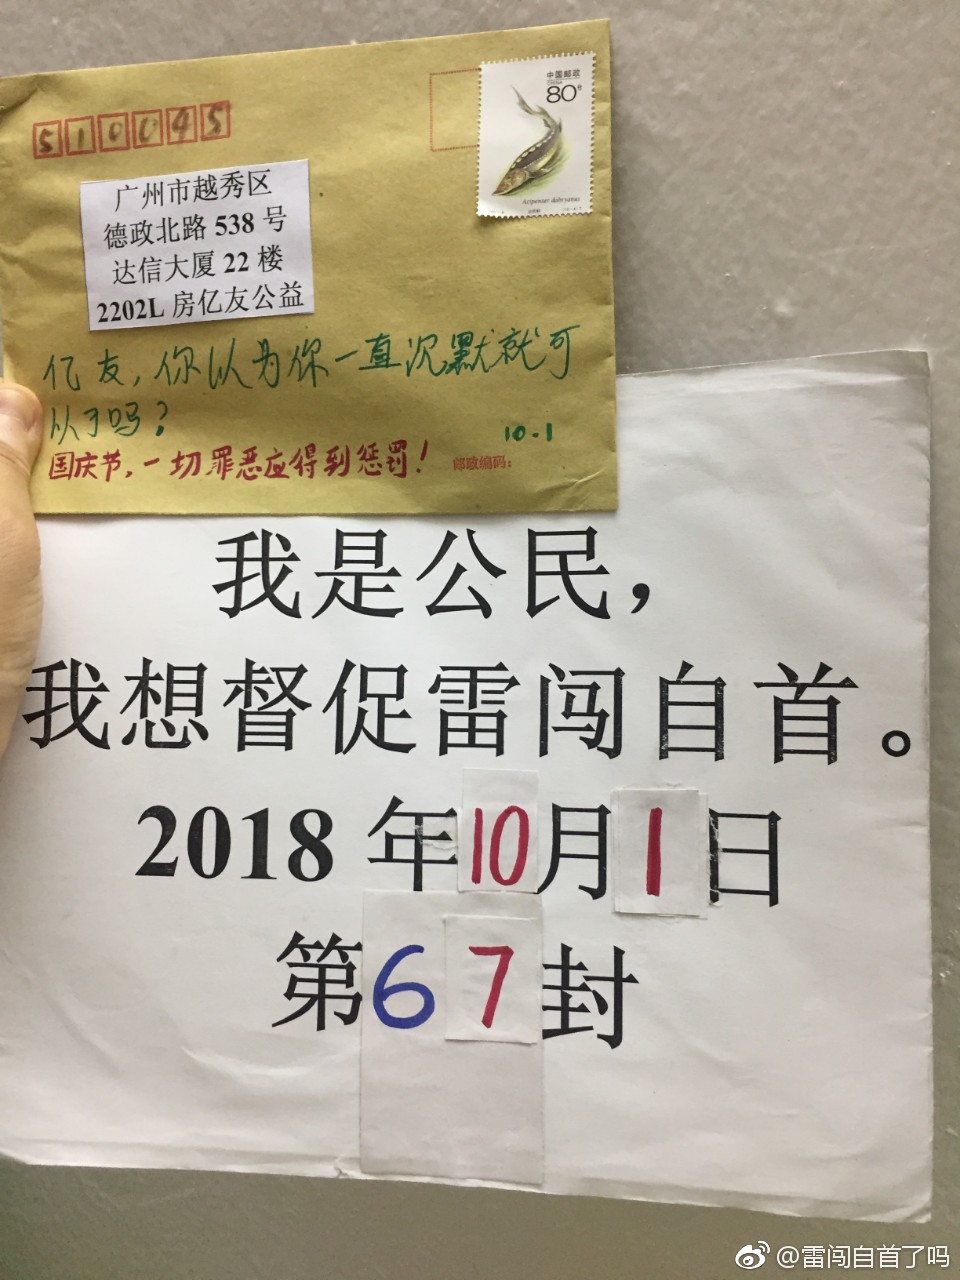 510045
中国邮政
CHINA
80分
Acipenser dabryanus
广州市越秀区
德政北路 538 号
达信大厦 22 楼
2202L 房亿友公益
亿友，你以为你一直沉默就可
以了吗？
10.1
国庆节，一切罪恶应得到惩罚！
邮政编码：
我是公民，
我想督促雷闯自首。
2018 年10月1日
第67封
@雷闯自首了吗